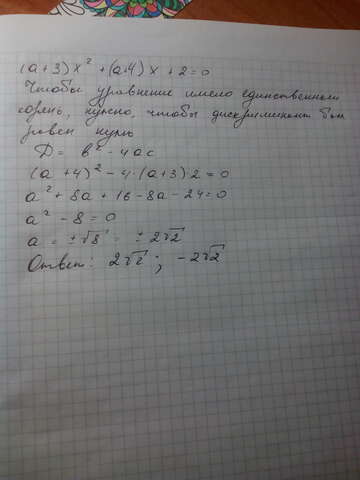 (a+3)x² + (a+4)x + 2 = 0
Чтобы уравнение имело единственный
корень, нужно, чтобы дискриминант был
равен нулю
D = b² - 4ac
(a + 4)² - 4·(a+3)2 = 0
a² + 8a + 16 - 8a - 24 = 0
a² - 8 = 0
a = ±√8 = ±2√2
Ответ: 2√2; -2√2